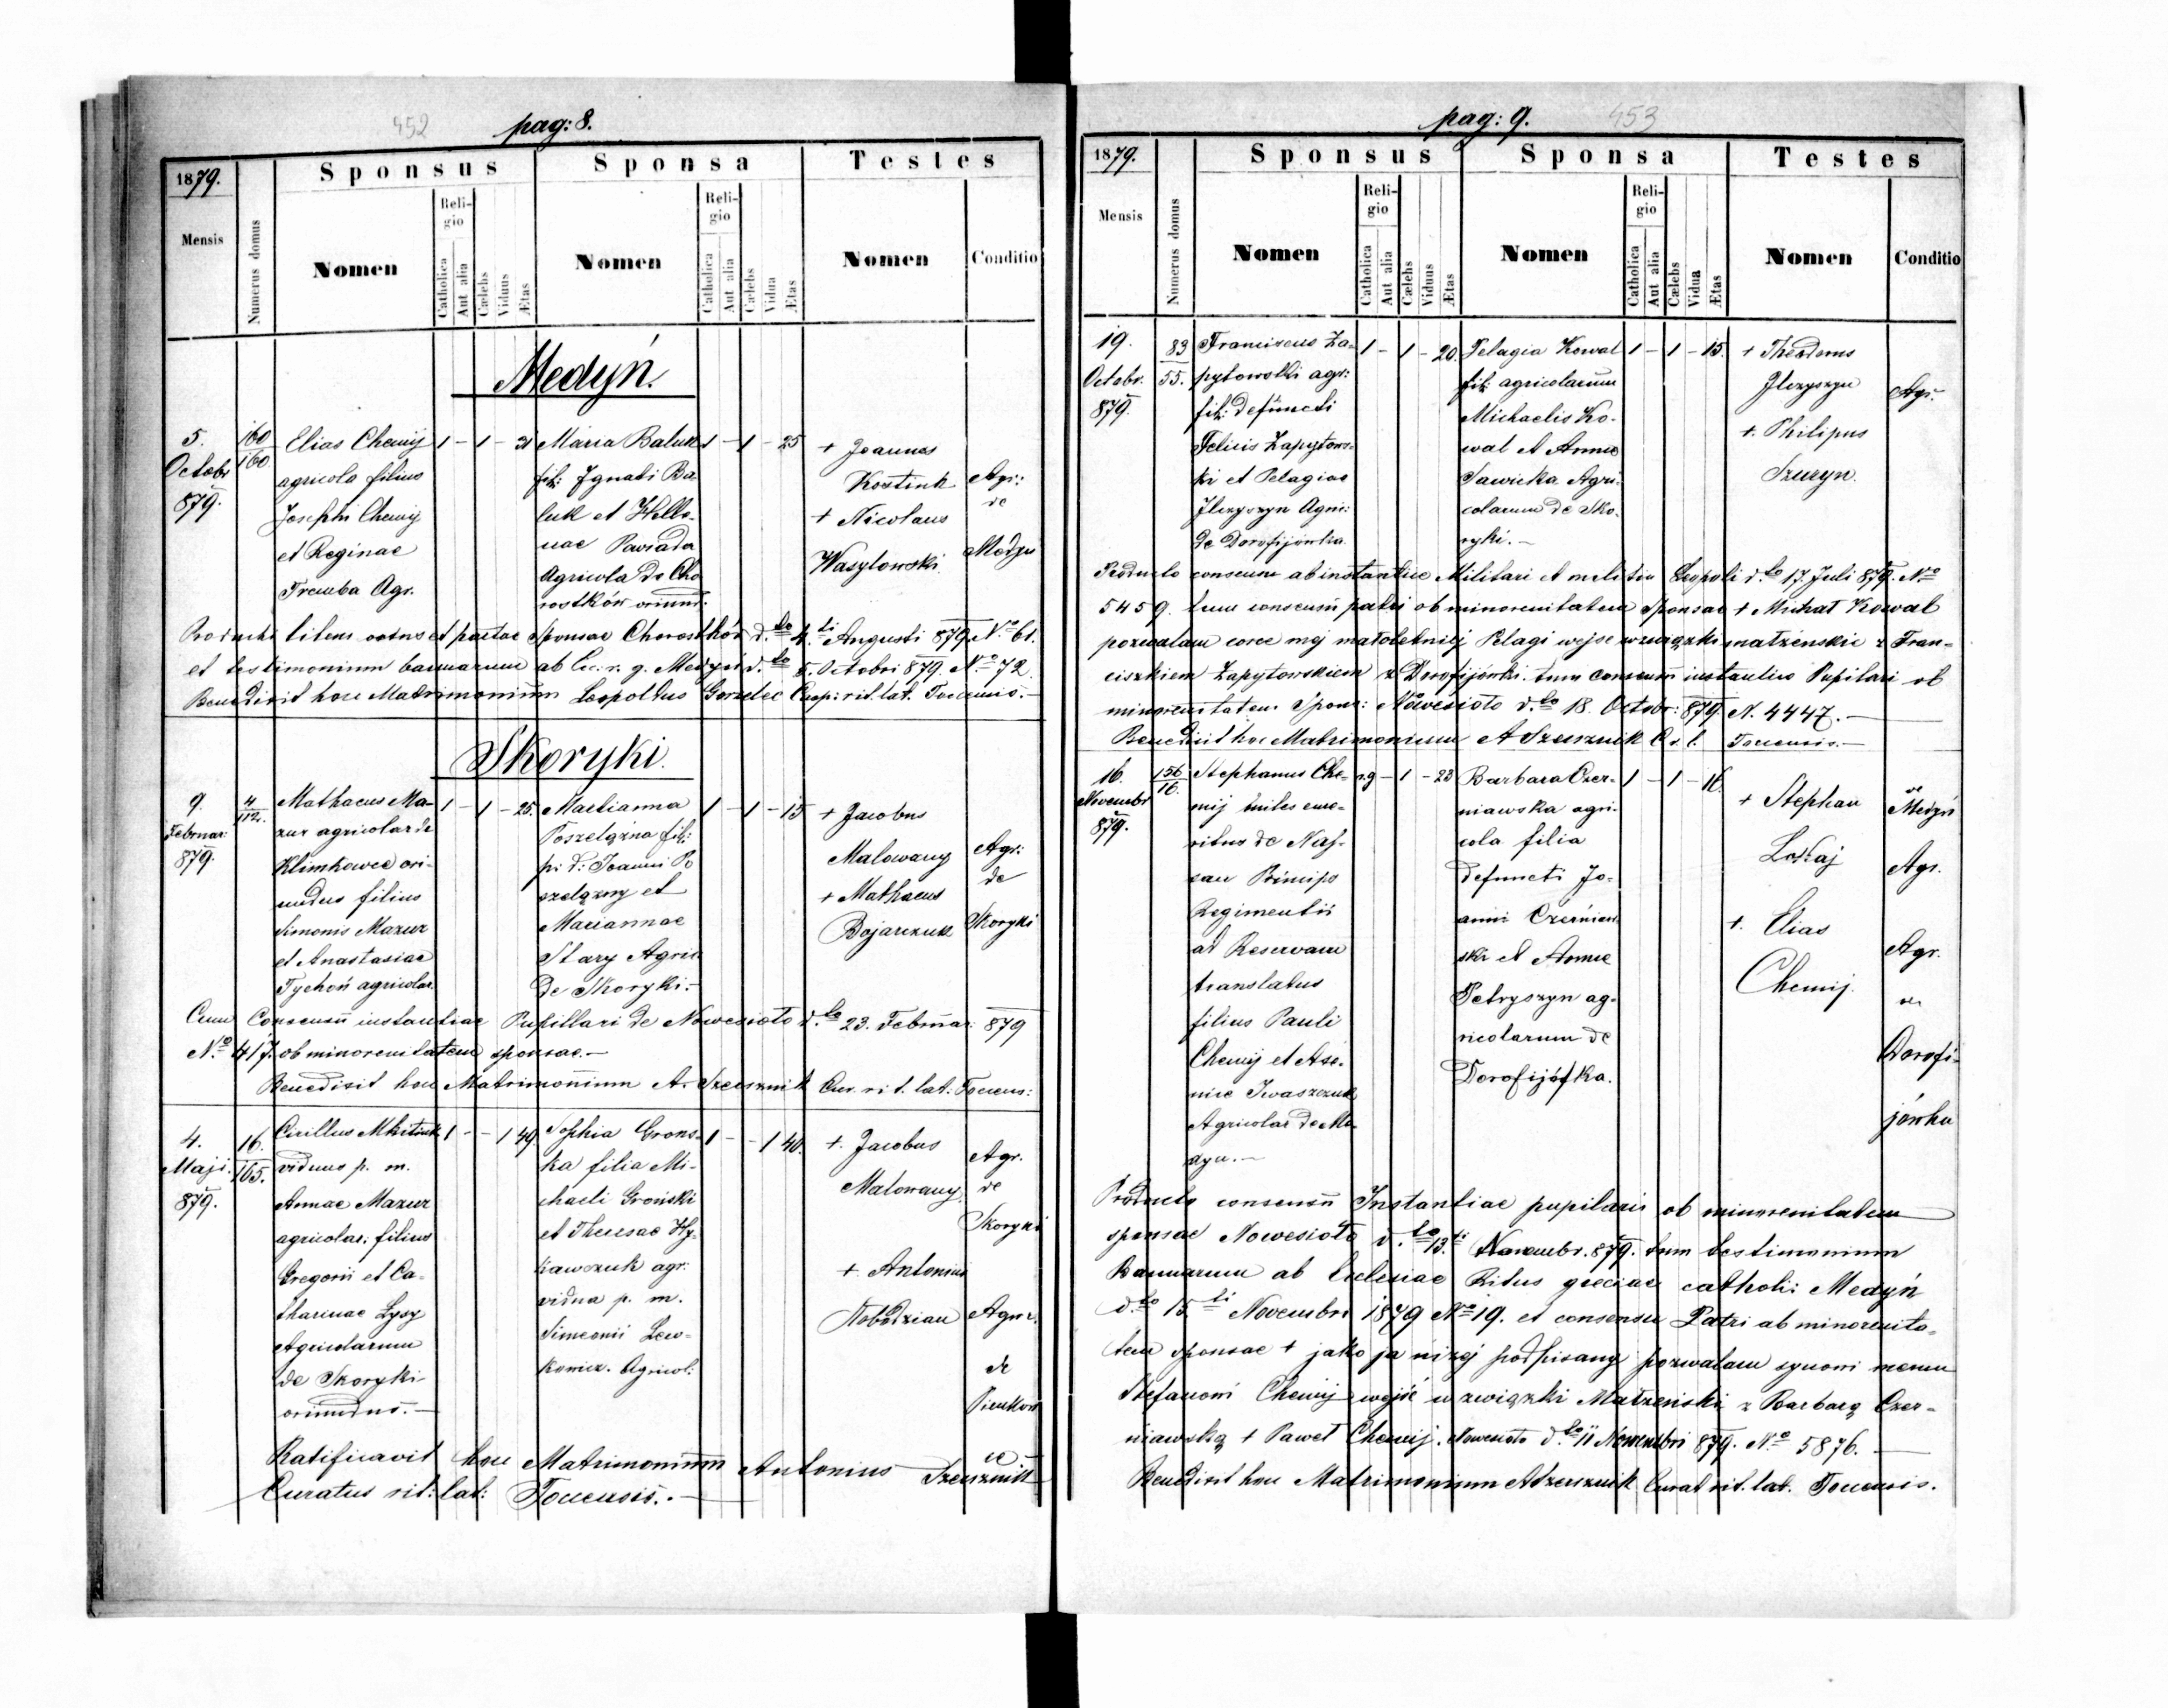 452
pag: 8.
1879.
Sponsus
Sponsa
Testes
Mensis
Numerus domus
Nomen
Religio
Catholica
Aut alia
Cælebs
Viduus
Ætas
Nomen
Religio
Catholica
Aut alia
Cælebs
Vidua
Ætas
Nomen
Conditio
Medyń.
5.
Octobr
879.
160
160
Elias Chemij
agricola filius
Josephi Chemij
et Reginae
Tremba Agr.
1 - 1 - 21
Maria Baluk
fil: Ignati Ba
luk et Hele-
nae
Agricola de Cho
rostków oriund:
1 - 1 - 25
+ Joannes
Kostiuk
+ Nicolaus
Wasylowski
Agr:
de
Medyń
Producti litens ootns et partae Sponsae Chorostków d.to 4.ti Augusti 879. No 61.
et testimonium bannarum ab Ec. r. g. Medyń d.to 5. Octobri 879. No 72
Benedixit hoc Matrimonium Leopoldus Gorzelec Coop: rit. lat. Tocensis.-
Skoryki.
9.
Februar:
879.
4
112.
Mathaeus Ma-
zur agricolar de
Klimkowce ori-
undus filius
Simonis Mazur
et Anastasiae
Tychoń agricolar.
1 - 1 - 25.
Marianna
Poszelązna fil:
p: d: Joanni Po
szelązny et
Mariannae
Stary Agric
de Skoryki.-
1 - 1 - 15
+ Jacobus
Malowany
+ Mathaeus
Bojarczuk
Agr:
de
Skoryki
Cum Consensu instantiae Pupillari de Nowesioło d.to 23. Februar: 879
No 417. ob minorenitatem sponsae.-
Benedixit hoc Matrimonium A. Szeusznik Cur. rit. lat: Tocens:
4.
Maji.
879.
16.
165.
Cirillus Mkitiuk
viduus p. m.
Annae Mazur
agricolar: filius
Gregorii et Ca-
tharinae Lysy
Agricolarum
de Skoryki
oriundus.-
1 - - 1 49.
Sophia Grons-
ka filia Mi-
chaeli Gronski
et Theresae Hy-
kawczuk agr:
vidua p. m.
Simeonii Lew-
kowicz. Agricol:
1 - - 1 40.
+. Jacobus
Malowany
+. Antonius
Slobodzian
Agr.
de
Skoryki
Agric.
de
Pieńkow
ce
Ratificavit hoc Matrimonium Antonius Szeusznik
Curatus rit: lat: Tocensis.-
pag: 9.
453
1879.
Sponsus
Sponsa
Testes
Mensis
Numerus domus
Nomen
Religio
Catholica
Aut alia
Cælebs
Viduus
Ætas
Nomen
Religio
Catholica
Aut alia
Cælebs
Vidua
Ætas
Nomen
Conditio
19.
Octobr.
879.
83
55.
Franciscus Za-
pytowski agr:
fil: defuncti
Felicis Zapytows-
ki et Pelagiae
Ilczyszyn Agric:
de Dorofijówka.
1 - 1 - 20.
Pelagia Kowal
fil: agricolarum
Michaelis Ko-
wal et Annae
Sawicka Agri-
colarum de Sko-
ryki.-
1 - 1 - 15.
+ Theodorus
Ilczyszyn
+. Philipus
Szuryn.
Agr.
Producto consensu ab instantiae Militari et militiae Leopoli d.to 17. Juli 879. No
5459. tum consensu patri ob minorenitatem Sponsae + Michał Kowal
pozwalam corce mej małoletniej Pelagi wejsc w związki małzenskie z Fran-
ciszkiem Zapytowskiem z Dorofijówki. tum consensu instantiae Pupilari ob
minorenitatem Spons: Nowesioło d.to 18. Octobr: 879. N. 4447.-
Benedixit hoc Matrimonium A Szeusznik C. r. l. Tocensis.-
16.
Novembr
879.
156
16.
Stephanus Che-
mij miles eme-
ritus de Nas-
sau Princips
Regimentii
ad Reservam
translatus
filius Pauli
Chemij et Ase-
niae Iwaszczuk
Agricolar de Me-
dyn.-
r.g - 1 - 23
Barbara Czer-
niawska agri-
cola filia
defuncti Jo-
anni Czerniaw
ski et Annae
Petryszyn ag-
ricolarum de
Dorofijófka.
1 - 1 - 16.
+ Stephan
Lokaj
+. Elias
Chemij.
de
Medyń
Agr.
Agr.
de
Dorofi-
jówka
Producto consensu Instantiae pupilaris ob minorenitatem
sponsae Nowesioło d.to 13.ti Novembr. 879. tum testimonium
Bannarum ab Ecclesiae Ritus greciae catholi: Medyń
d.to 15.ti Novembri 1879 No 19. et consensu Patri ab minorenita-
tem sponsae + jako ja niżej podpisany pozwalam synowi memu
Stefanowi Chemij wejść w związki Małżenski z Barbarą Czer-
niawską + Paweł Chemij. Nowesioło d.to 11 Novembri 879. No 5876.-
Benedixit hoc Matrimonium A Szeusznik Curat rit. lat. Tocensis.